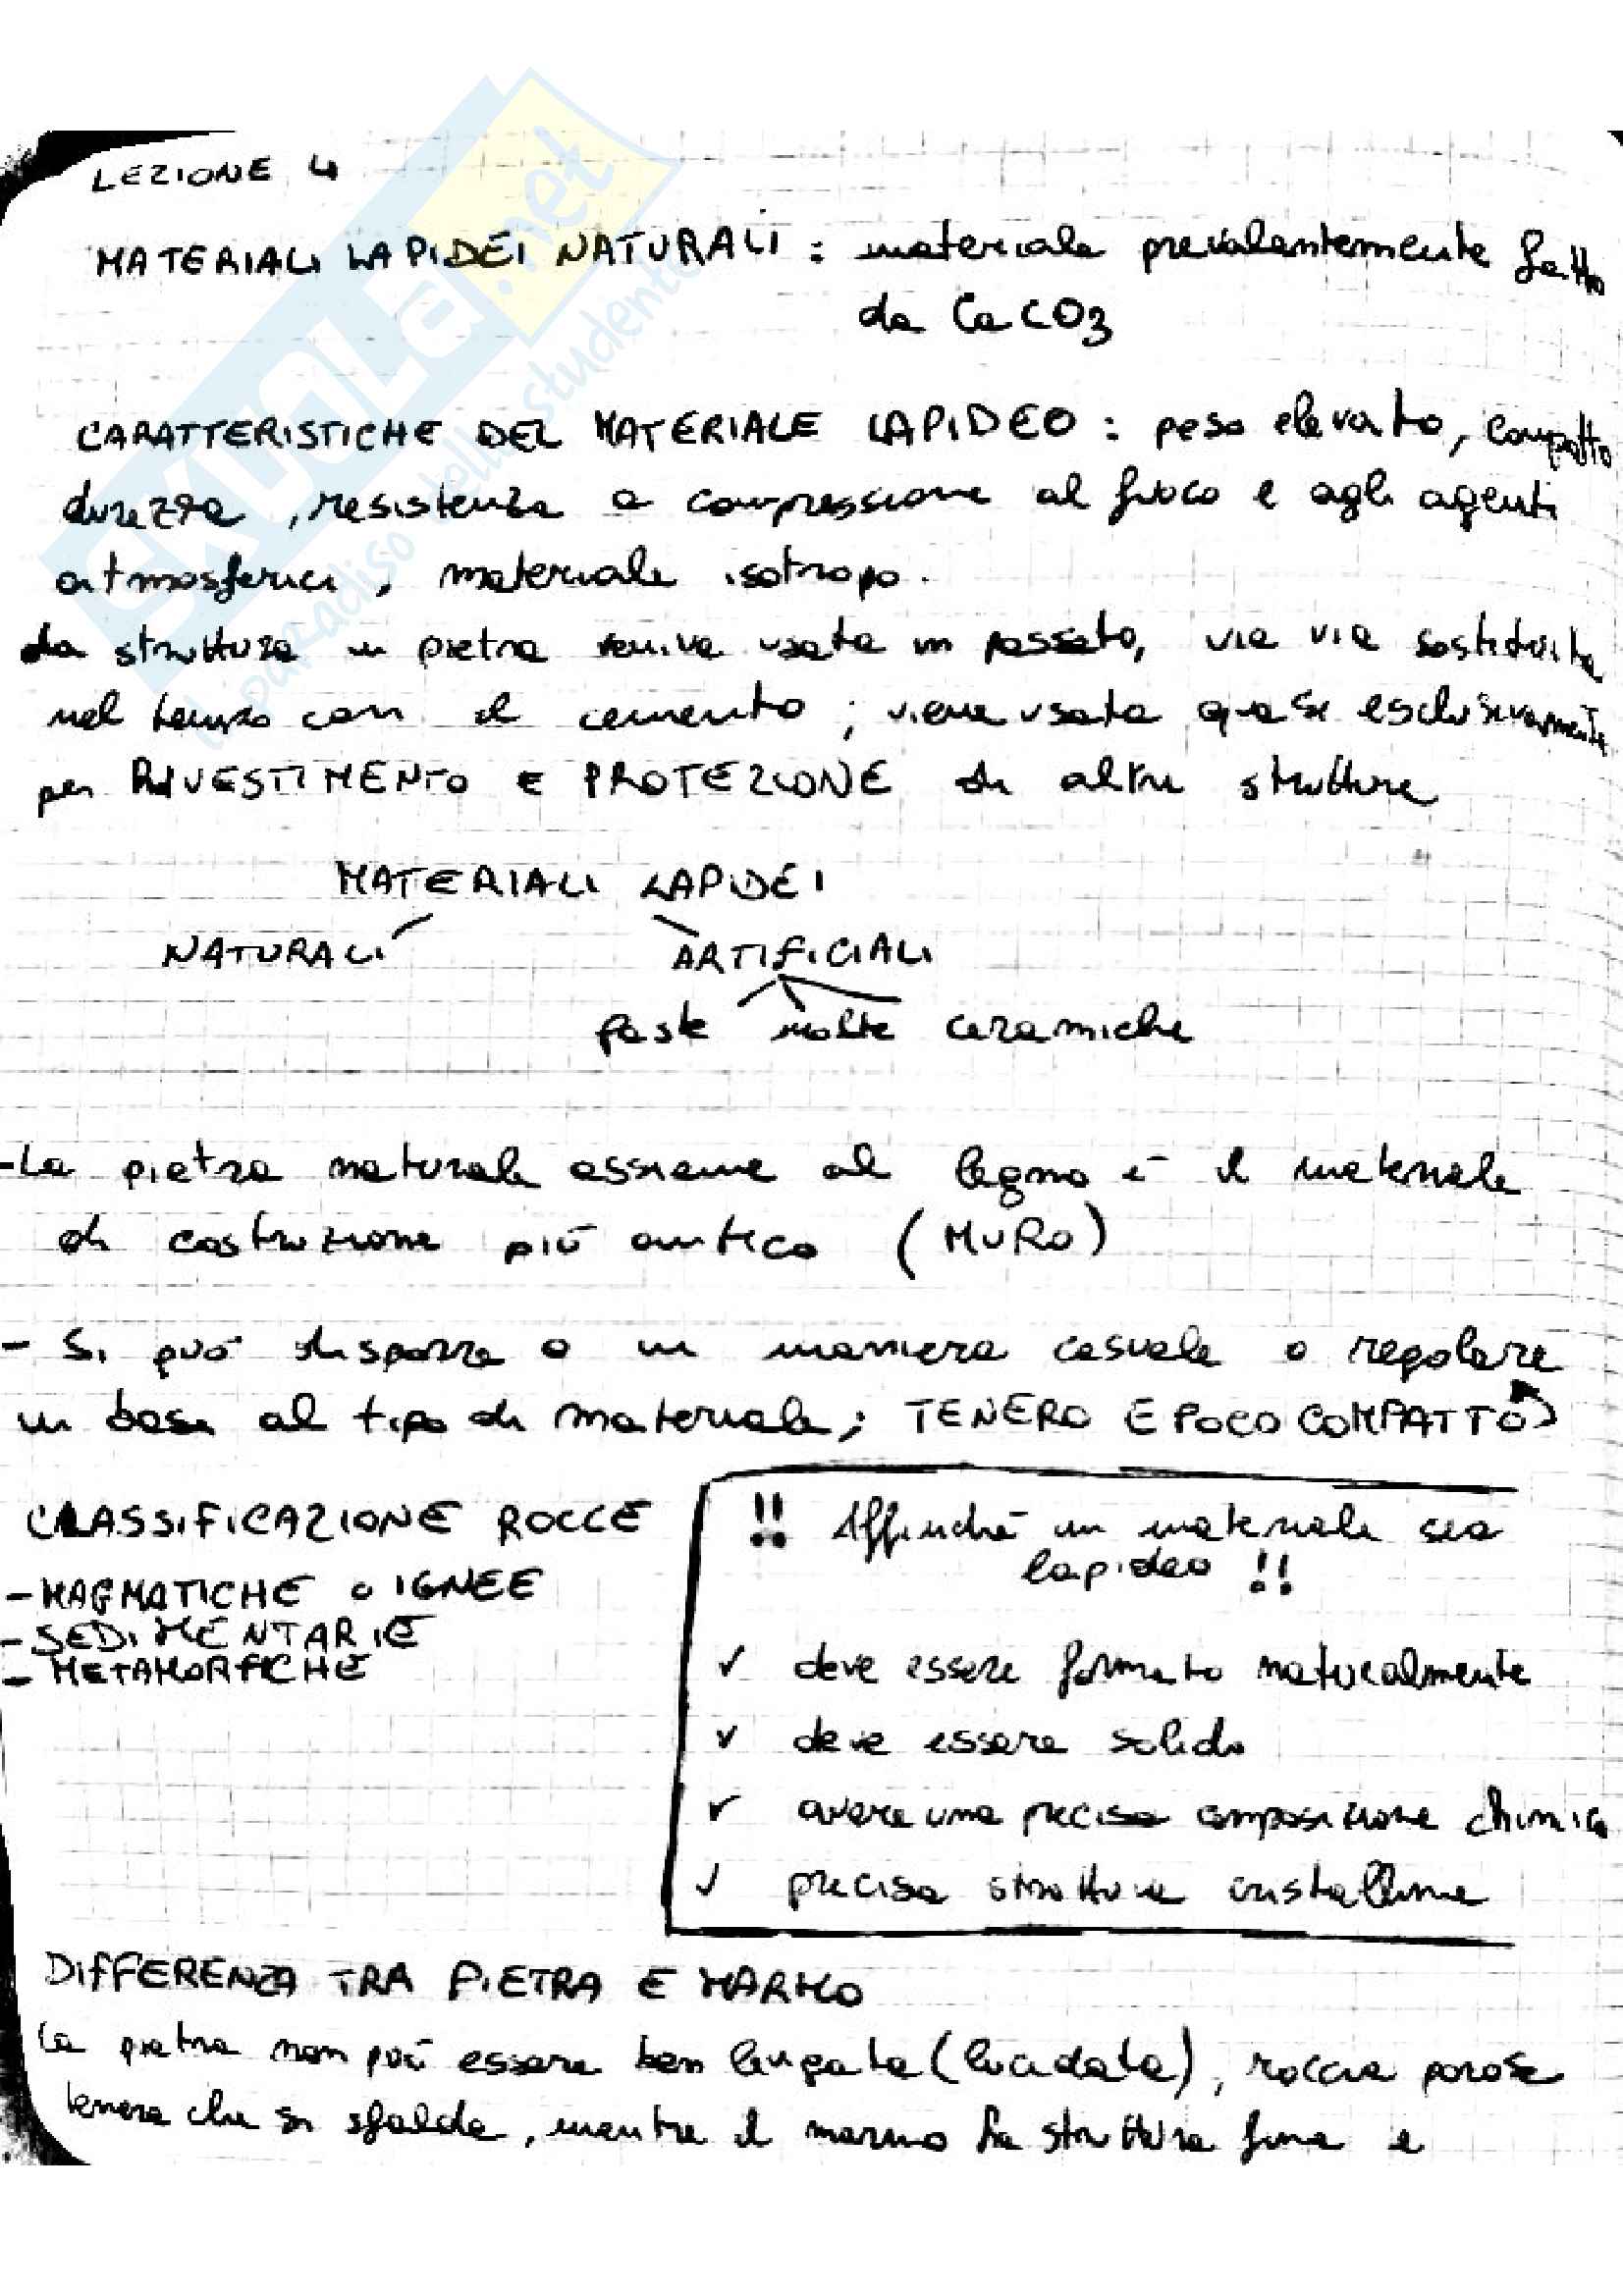 LEZIONE 4
MATERIALI LAPIDEI NATURALI : materiale prevalentemente fatto
da CaCO3
CARATTERISTICHE DEL MATERIALE LAPIDEO : peso elevato, compatto
durezza, resistenza a compressione al fuoco e agli agenti
atmosferici, materiale isotropo.
La struttura in pietra veniva usata in passato, via via sostituita
nel tempo con il cemento ; viene usata quasi esclusivamente
per RIVESTIMENTO E PROTEZIONE di altre strutture
MATERIALI LAPIDEI
NATURALI ARTIFICIALI
paste malte ceramiche
- La pietra naturale assieme al legno è il materiale
di costruzione più antico (MURO)
- Si può disporre o in maniera casuale o regolare
in base al tipo di materiale; TENERO E POCO COMPATTO
CLASSIFICAZIONE ROCCE
- MAGMATICHE O IGNEE
- SEDIMENTARIE
- METAMORFICHE
!! Affinché un materiale sia
lapideo !!
✓ deve essere formato naturalmente
✓ deve essere solido
✓ avere una precisa composizione chimica
✓ precisa struttura cristallina
DIFFERENZA TRA PIETRA E MARMO
La pietra non può essere ben levigata (lucidata), roccia porosa
tenera che si sfalda, mentre il marmo ha struttura fine e
SKUOLA.net
il paradiso dello studente